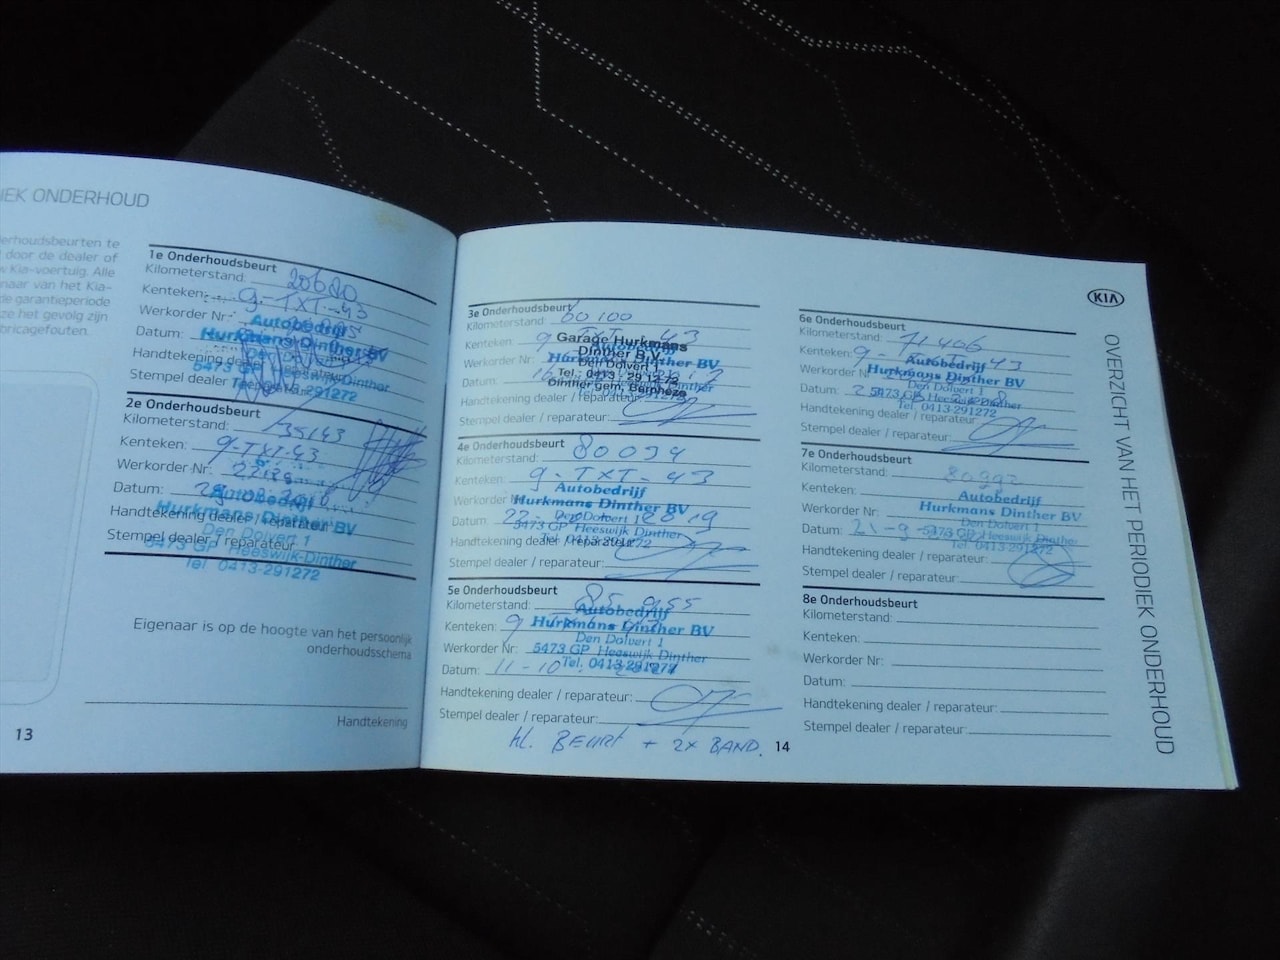 IEK ONDERHOUD
erhoudsbeurten te
door de dealer of
w Kia-voertuig. Alle
naar van het Kia-
de garantieperiode
ze het gevolg zijn
bricagefouten.
1e Onderhoudsbeurt
Kilometerstand: 20620
Kenteken: 9-TXT-43
Werkorder Nr:
Datum:
Handtekening dealer
Stempel dealer
Autobedrijf
Hurkmans Dinther BV
Den Dolvert 1
5473 GP Heeswijk-Dinther
Tel. 0413-291272
2e Onderhoudsbeurt
Kilometerstand: 35143
Kenteken: 9-TXT-43
Werkorder Nr:
Datum:
Handtekening dealer / reparateur:
Stempel dealer / reparateur:
Autobedrijf
Hurkmans Dinther BV
Den Dolvert 1
5473 GP Heeswijk-Dinther
Tel 0413-291272
Eigenaar is op de hoogte van het persoonlijk
onderhoudsschema
Handtekening
13
3e Onderhoudsbeurt
Kilometerstand: 60100
Kenteken: 9 TXT-43
Werkorder Nr:
Datum:
Handtekening dealer / reparateur:
Stempel dealer / reparateur:
Garage Hurkmans
Dinther B.V.
Den Dolvert 1
Tel.: 0413 - 29 12 72
Dinther gem. Bernheze
Autobedrijf
Hurkmans Dinther BV
4e Onderhoudsbeurt
Kilometerstand: 80034
Kenteken: 9-TXT-43
Werkorder Nr:
Datum:
Handtekening dealer / reparateur:
Stempel dealer / reparateur:
Autobedrijf
Hurkmans Dinther BV
Den Dolvert 1
5473 GP Heeswijk Dinther
Tel. 0413-291272
5e Onderhoudsbeurt
Kilometerstand: 85955
Kenteken: 9
Werkorder Nr:
Datum: 11-10
Handtekening dealer / reparateur:
Stempel dealer / reparateur:
Autobedrijf
Hurkmans Dinther BV
Den Dolvert 1
5473 GP Heeswijk Dinther
Tel. 0413-291272
kl. BEURT + 2x BAND.
14
6e Onderhoudsbeurt
Kilometerstand: 71406
Kenteken: 9-
Werkorder Nr:
Datum:
Handtekening dealer / reparateur:
Stempel dealer / reparateur:
Autobedrijf
Hurkmans Dinther BV
Den Dolvert 1
5473 GP Heeswijk Dinther
Tel. 0413-291272
7e Onderhoudsbeurt
Kilometerstand:
Kenteken:
Werkorder Nr:
Datum: 21-9
Handtekening dealer / reparateur:
Stempel dealer / reparateur:
Autobedrijf
Hurkmans Dinther BV
Den Dolvert 1
5473 GP Heeswijk Dinther
Tel. 0413-291272
8e Onderhoudsbeurt
Kilometerstand:
Kenteken:
Werkorder Nr:
Datum:
Handtekening dealer / reparateur:
Stempel dealer / reparateur:
KIA
OVERZICHT VAN HET PERIODIEK ONDERHOUD